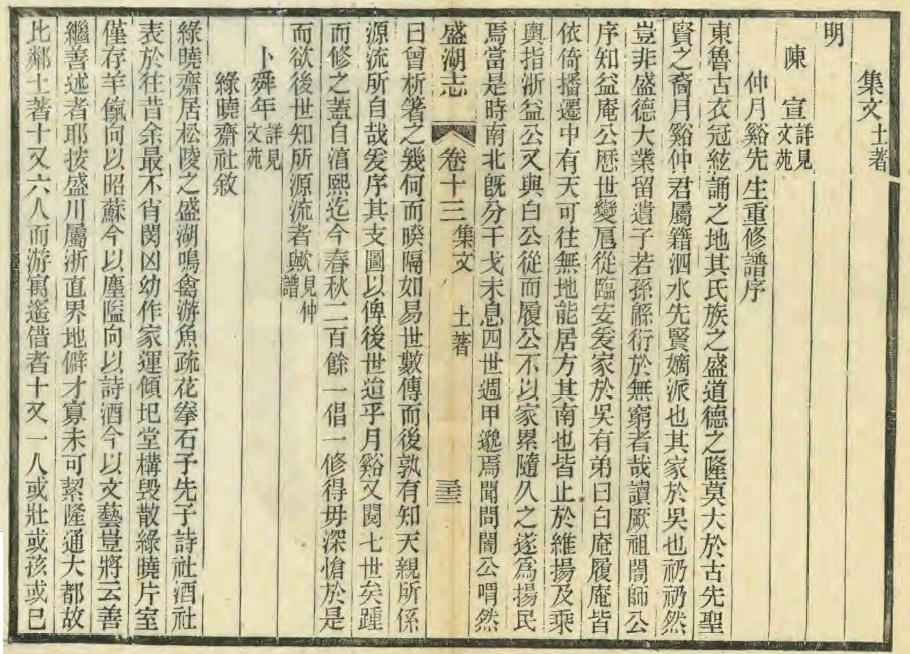 集文土著
明
陳　宣詳見文苑
仲月谿先生重修譜序
東魯古衣冠絃誦之地其氏族之盛道德之隆莫大於古先聖
賢之裔月谿仲君屬籍泗水先賢嫡派也其家於吳也礽礽然
豈非盛德大業留遺子若孫緜衍於無窮者哉讀厥祖誾師公
序知益庵公歷世變扈從臨安爰家於吳有弟曰白庵履庵皆
依倚播遷中有天可往無地能居方其南也皆止於維揚及乘
輿指浙益公又與白公從而履公不以家累隨久之遂爲揚民
焉當是時南北旣分干戈未息四世週甲邈焉聞問誾公喟然
盛湖志　卷十三　集文　土著　三三
曰曾析箸之幾何而暌隔如易世數傳而後孰有知天親所係
源流所自哉爰序其支圖以俾後世迨乎月谿又閱七世矣踵
而修之蓋自淳熙迄今春秋二百餘一倡一修得毋深愴於是
而欲後世知所源流者歟見仲譜
卜舜年詳見文苑
綠曉齋社敘
綠曉齋居松陵之盛湖鳴禽游魚疏花拳石予先子詩社酒社
表於往昔余最不肖閔凶幼作家運傾圮堂構毀散綠曉片室
僅存羊餼向以昭蘇今以塵隘向以詩酒今以文藝豈將云善
繼善述者耶按盛川屬浙直界地僻才寡未可絜隆通大都故
比鄰土著十又六人而游寓遙借者十又一人或壯或孩或已